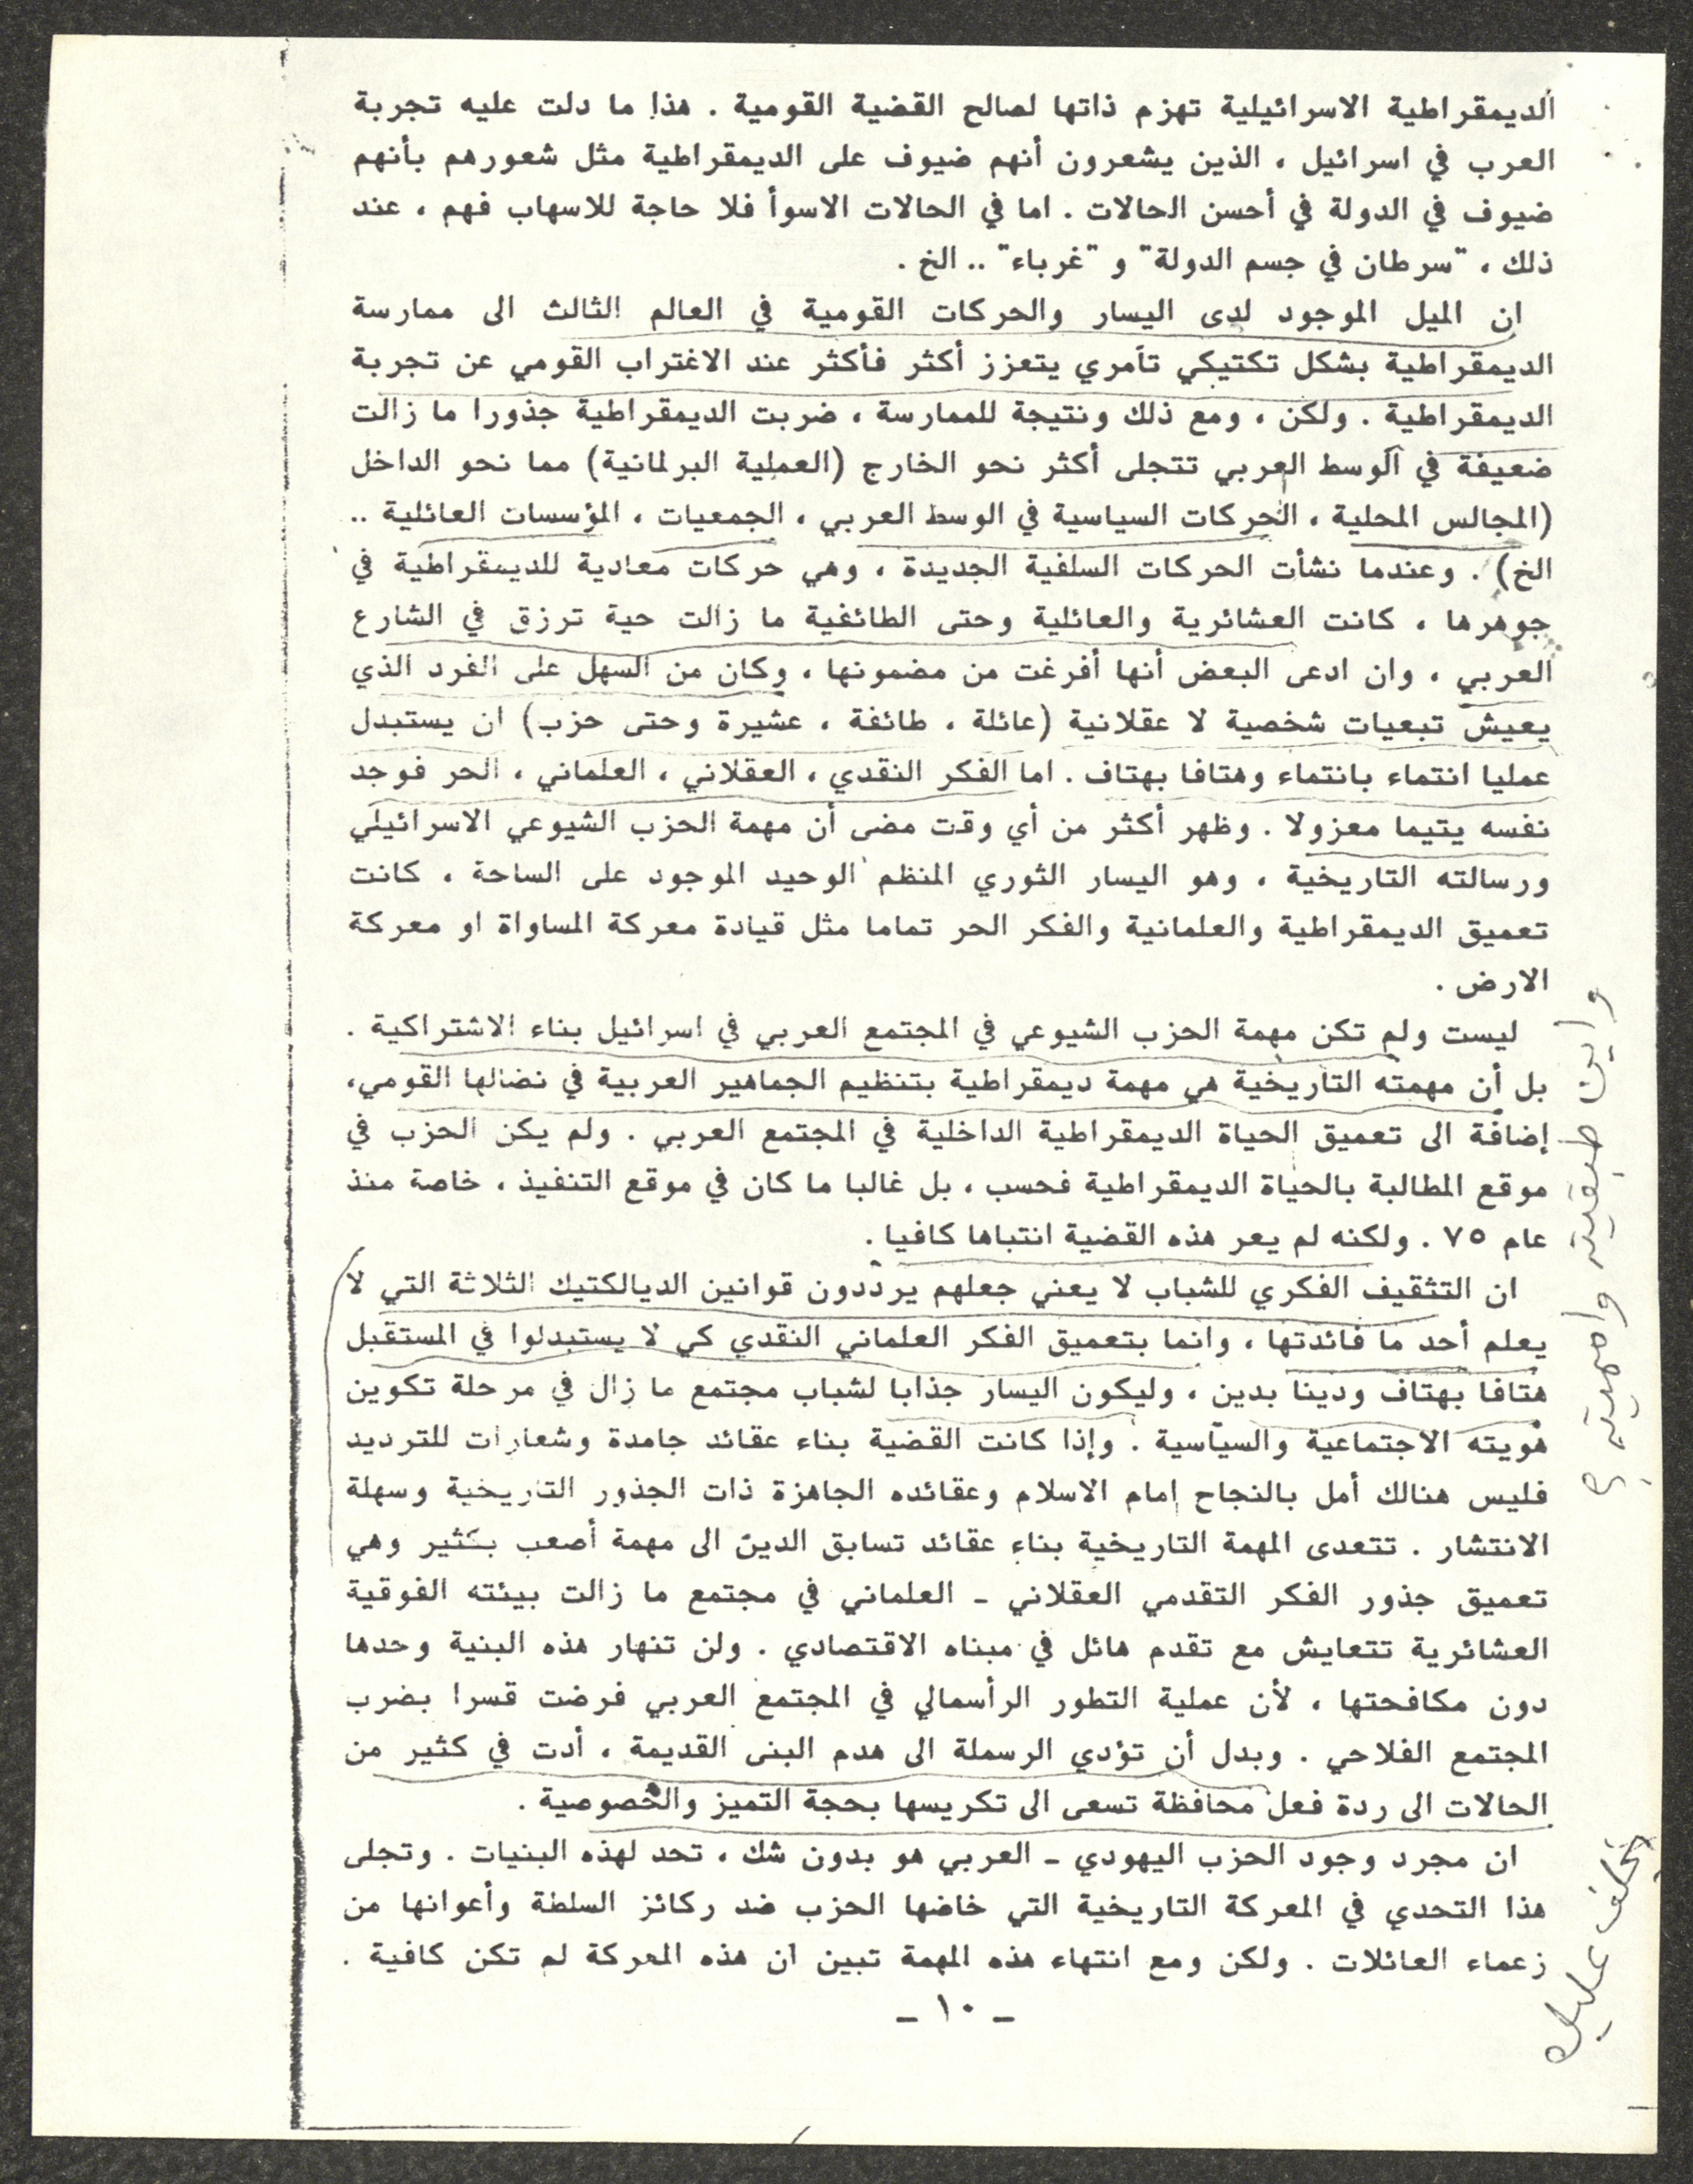 الديمقراطية الاسرائيلية تهزم ذاتها لصالح القضية القومية . هذا ما دلت عليه تجربة
العرب في اسرائيل ، الذين يشعرون أنهم ضيوف على الديمقراطية مثل شعورهم بأنهم
ضيوف في الدولة في أحسن الحالات . اما في الحالات الاسوأ فلا حاجة للاسهاب فهم ، عند
ذلك ، "سرطان في جسم الدولة" و "غرباء" .. الخ .
ان الميل الموجود لدى اليسار والحركات القومية في العالم الثالث الى ممارسة
الديمقراطية بشكل تكتيكي تآمري يتعزز أكثر فأكثر عند الاغتراب القومي عن تجربة
الديمقراطية . ولكن ، ومع ذلك ونتيجة للممارسة ، ضربت الديمقراطية جذورا ما زالت
ضعيفة في الوسط العربي تتجلى أكثر نحو الخارج (العملية البرلمانية) مما نحو الداخل
(المجالس المحلية ، الحركات السياسية في الوسط العربي ، الجمعيات ، المؤسسات العائلية ..
الخ) . وعندما نشأت الحركات السلفية الجديدة ، وهي حركات معادية للديمقراطية في
جوهرها ، كانت العشائرية والعائلية وحتى الطائفية ما زالت حية ترزق في الشارع
العربي ، وان ادعى البعض أنها أفرغت من مضمونها ، وكان من السهل على الفرد الذي
يعيش تبعيات شخصية لا عقلانية (عائلة ، طائفة ، عشيرة وحتى حزب) ان يستبدل
عمليا انتماء بانتماء وهتافا بهتاف . اما الفكر النقدي ، العقلاني ، العلماني ، الحر فوجد
نفسه يتيما معزولا . وظهر أكثر من أي وقت مضى أن مهمة الحزب الشيوعي الاسرائيلي
ورسالته التاريخية ، وهو اليسار الثوري المنظم الوحيد الموجود على الساحة ، كانت
تعميق الديمقراطية والعلمانية والفكر الحر تماما مثل قيادة معركة المساواة او معركة
الارض .
ليست ولم تكن مهمة الحزب الشيوعي في المجتمع العربي في اسرائيل بناء الاشتراكية .
بل أن مهمته التاريخية هي مهمة ديمقراطية بتنظيم الجماهير العربية في نضالها القومي،
إضافة الى تعميق الحياة الديمقراطية الداخلية في المجتمع العربي . ولم يكن الحزب في
موقع المطالبة بالحياة الديمقراطية فحسب ، بل غالبا ما كان في موقع التنفيذ ، خاصة منذ
عام ٧٥ . ولكنه لم يعر هذه القضية انتباها كافيا .
ان التثقيف الفكري للشباب لا يعني جعلهم يرددون قوانين الديالكتيك الثلاثة التي لا
يعلم أحد ما فائدتها ، وانما بتعميق الفكر العلماني النقدي كي لا يستبدلوا في المستقبل
هتافا بهتاف ودينا بدين ، وليكون اليسار جذابا لشباب مجتمع ما زال في مرحلة تكوين
هويته الاجتماعية والسياسية . وإذا كانت القضية بناء عقائد جامدة وشعارات للترديد
فليس هنالك أمل بالنجاح إمام الاسلام وعقائده الجاهزة ذات الجذور التاريخية وسهلة
الانتشار . تتعدى المهمة التاريخية بناء عقائد تسابق الدين الى مهمة أصعب بكثير وهي
تعميق جذور الفكر التقدمي العقلاني - العلماني في مجتمع ما زالت بيئته الفوقية
العشائرية تتعايش مع تقدم هائل في مبناه الاقتصادي . ولن تنهار هذه البنية وحدها
دون مكافحتها ، لأن عملية التطور الرأسمالي في المجتمع العربي فرضت قسرا بضرب
المجتمع الفلاحي . وبدل أن تؤدي الرسملة الى هدم البنى القديمة ، أدت في كثير من
الحالات الى ردة فعل محافظة تسعى الى تكريسها بحجة التميز والخصوصية .
ان مجرد وجود الحزب اليهودي - العربي هو بدون شك ، تحد لهذه البنيات . وتجلى
هذا التحدي في المعركة التاريخية التي خاضها الحزب ضد ركائز السلطة وأعوانها من
زعماء العائلات . ولكن ومع انتهاء هذه المهمة تبين ان هذه المعركة لم تكن كافية .
- ١٠ -
واين طبقيته وامميته ؟